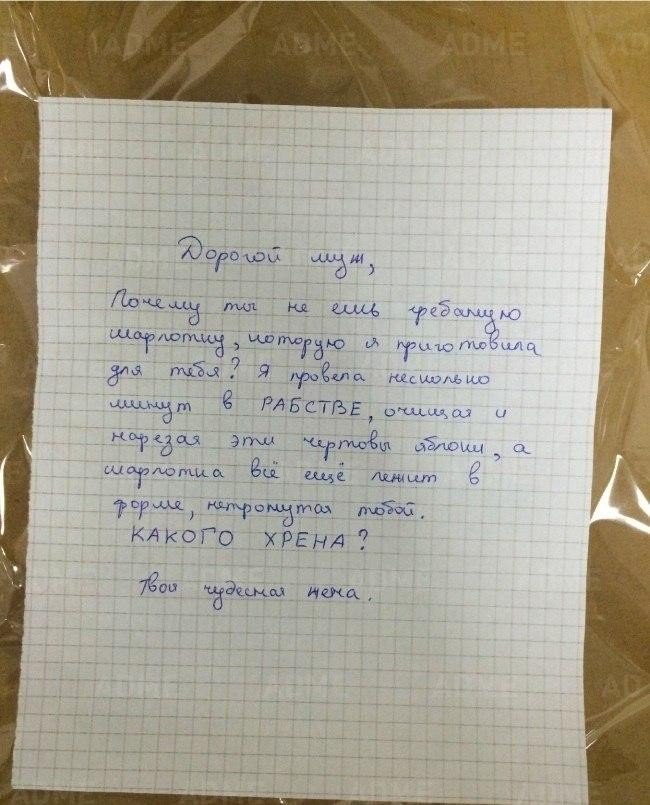 ADME
ADME
ADME
ADME
Дорогой муж,
Почему ты не ешь гребаную
шарлотку, которую я приготовила
для тебя? Я провела несколько
минут в РАБСТВЕ, очищая и
нарезая эти чертовы яблоки, а
шарлотка всё ещё лежит в
форме, нетронутая тобой.
КАКОГО ХРЕНА?
Твоя чудесная жена.